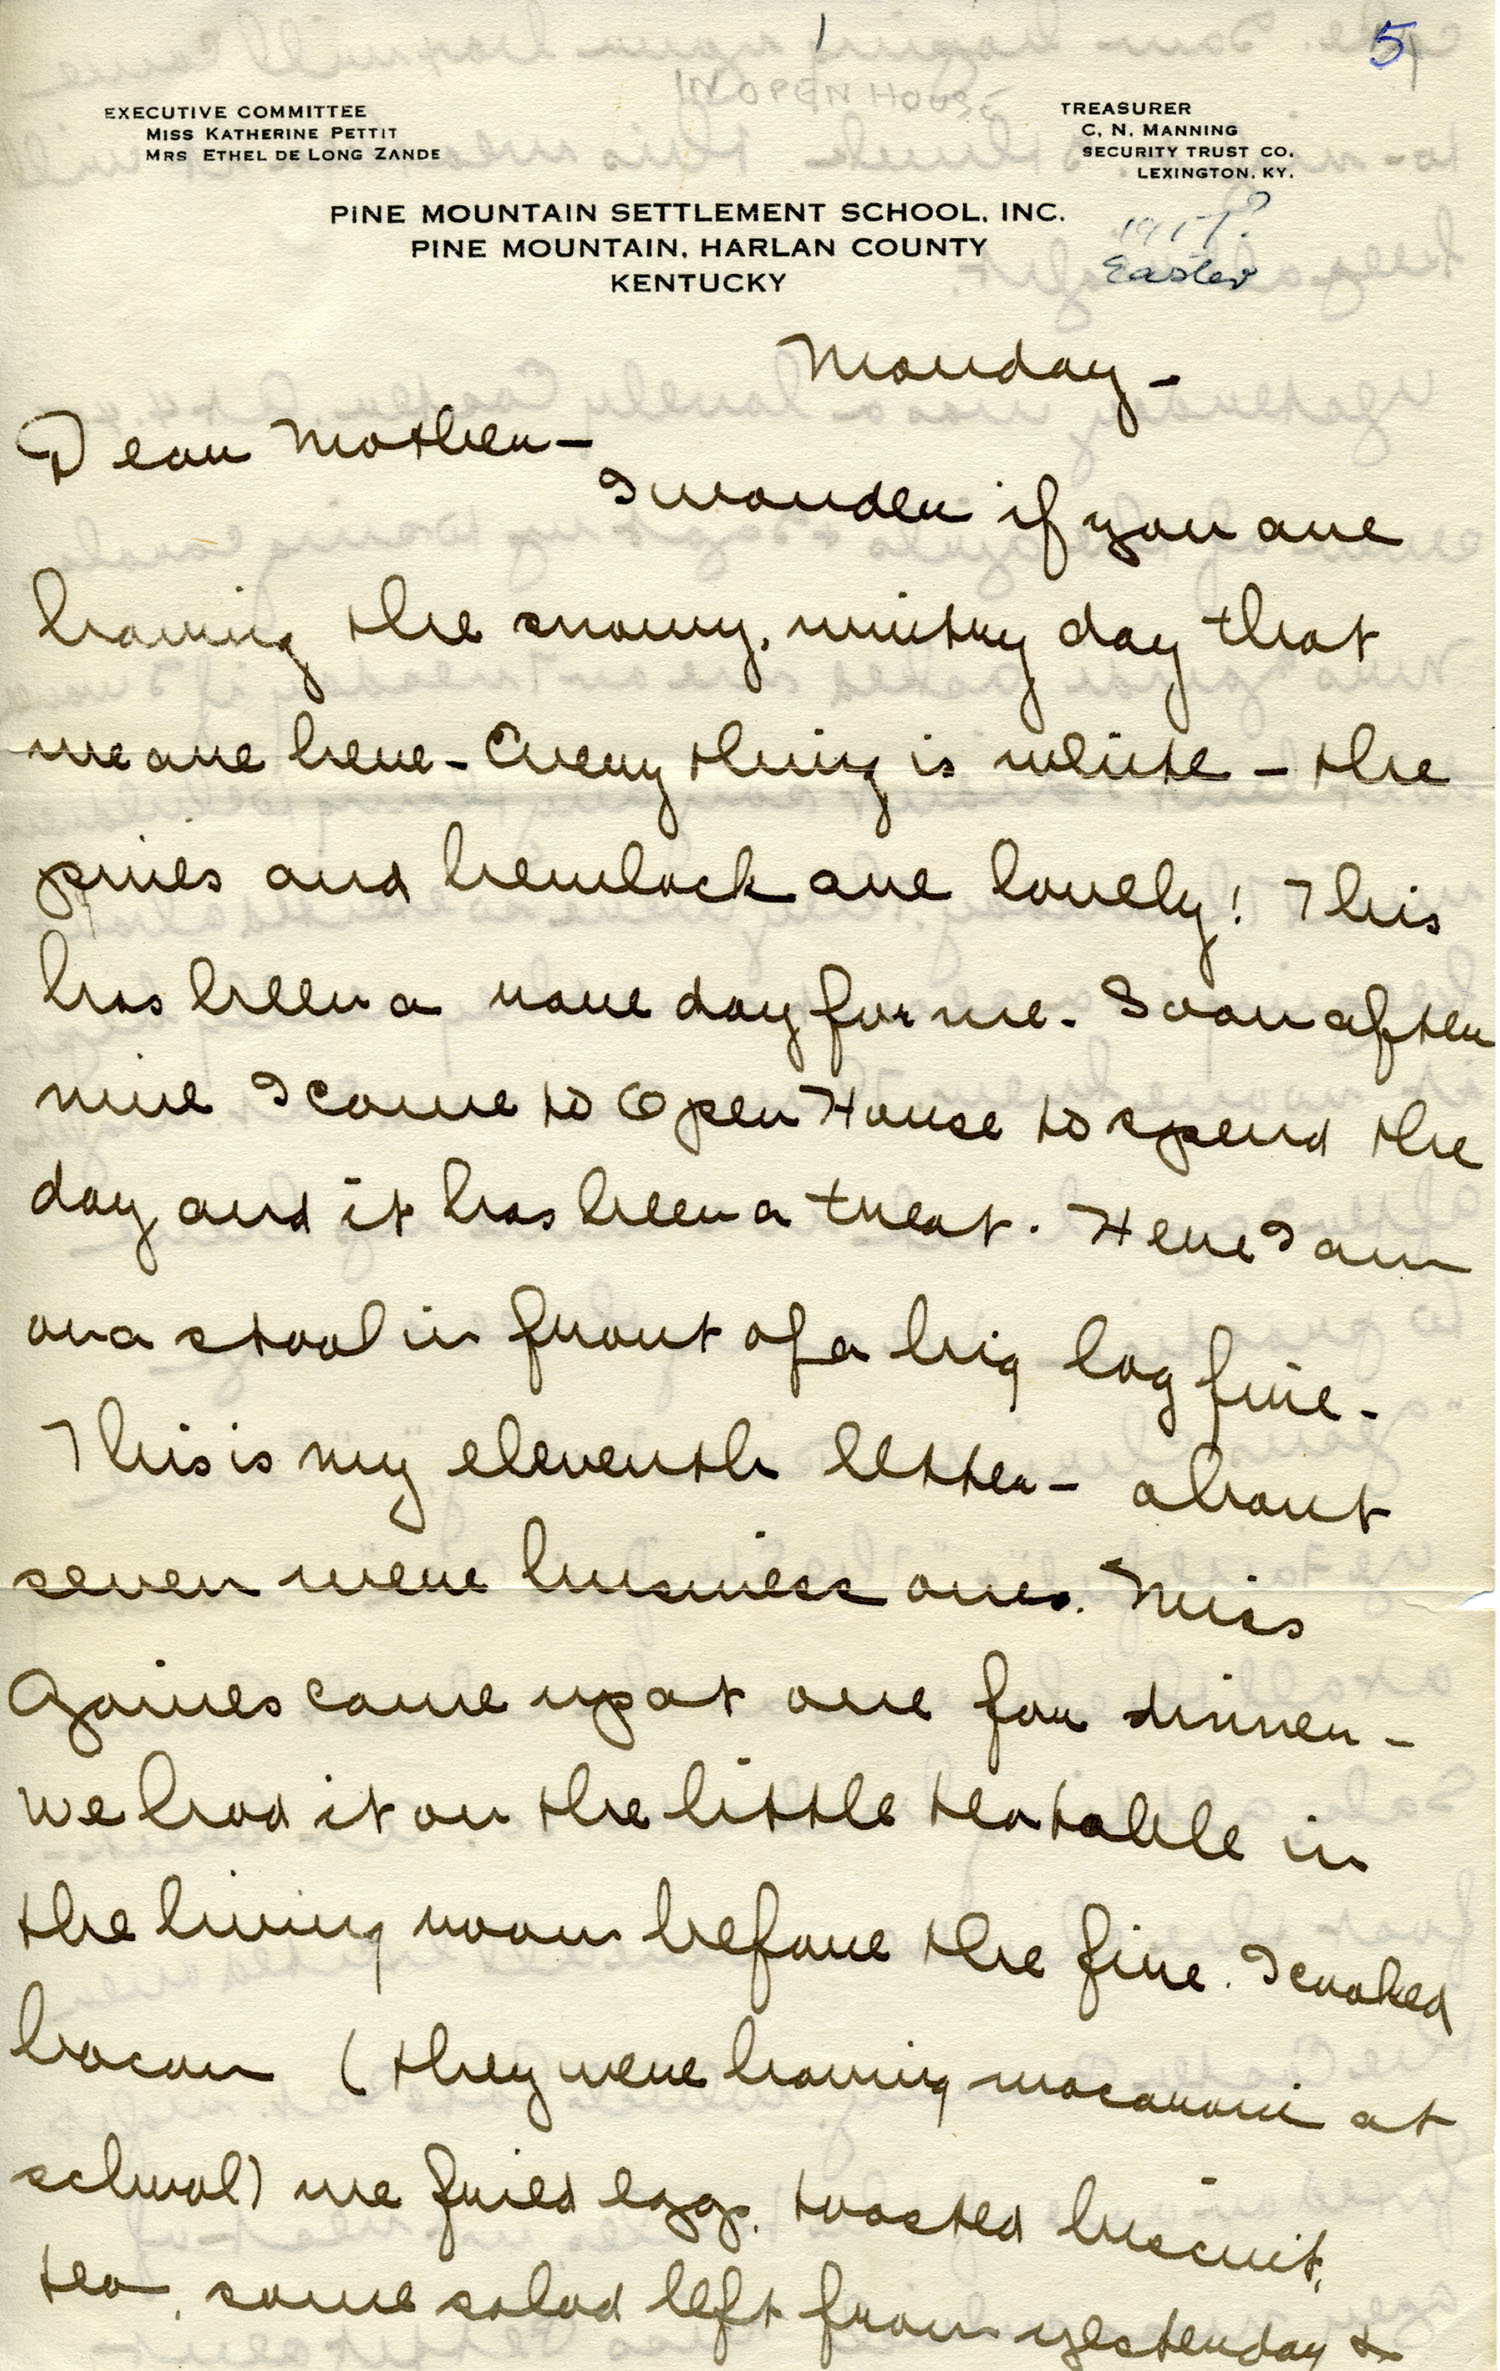 5
IN OPEN HOUSE
EXECUTIVE COMMITTEE
MISS KATHERINE PETTIT
MRS ETHEL DE LONG ZANDE
TREASURER
C. N. MANNING
SECURITY TRUST CO.
LEXINGTON, KY.
PINE MOUNTAIN SETTLEMENT SCHOOL, INC.
PINE MOUNTAIN, HARLAN COUNTY
KENTUCKY
Easter
Monday -
Dear Mother -
I wonder if you are
having the snowy, wintry day that
we are here - Every thing is white - the
pines and hemlock are lovely! This
has been a rare day for me. Soon after
nine I came to Open House to spend the
day and it has been a treat. Here I am
on a stool in front of a big log fire -
This is my eleventh letter - about
seven were business ones. Miss
Gaines came up at one for dinner -
we had it on the little tea table in
the living room before the fire. I cooked
bacon (they were having macaroni at
school) we fried eggs, toasted biscuit,
tea, some salad left from yesterday &